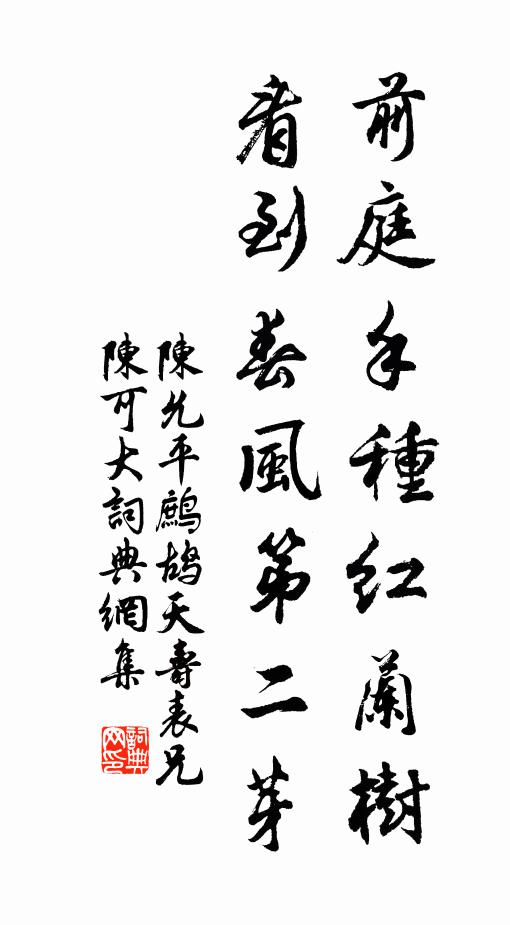 前庭手種紅蘭樹
看到春風第二芽
陳允平鷓鴣天壽表兄
陳可大詞典網集
詞典網印